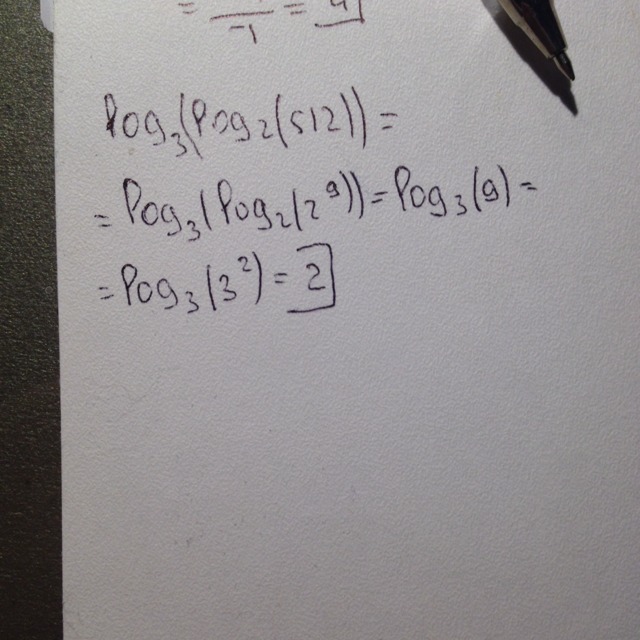 log₃(log₂(512)) =
= log₃(log₂(2⁹)) = log₃(9) =
= log₃(3²) = 2